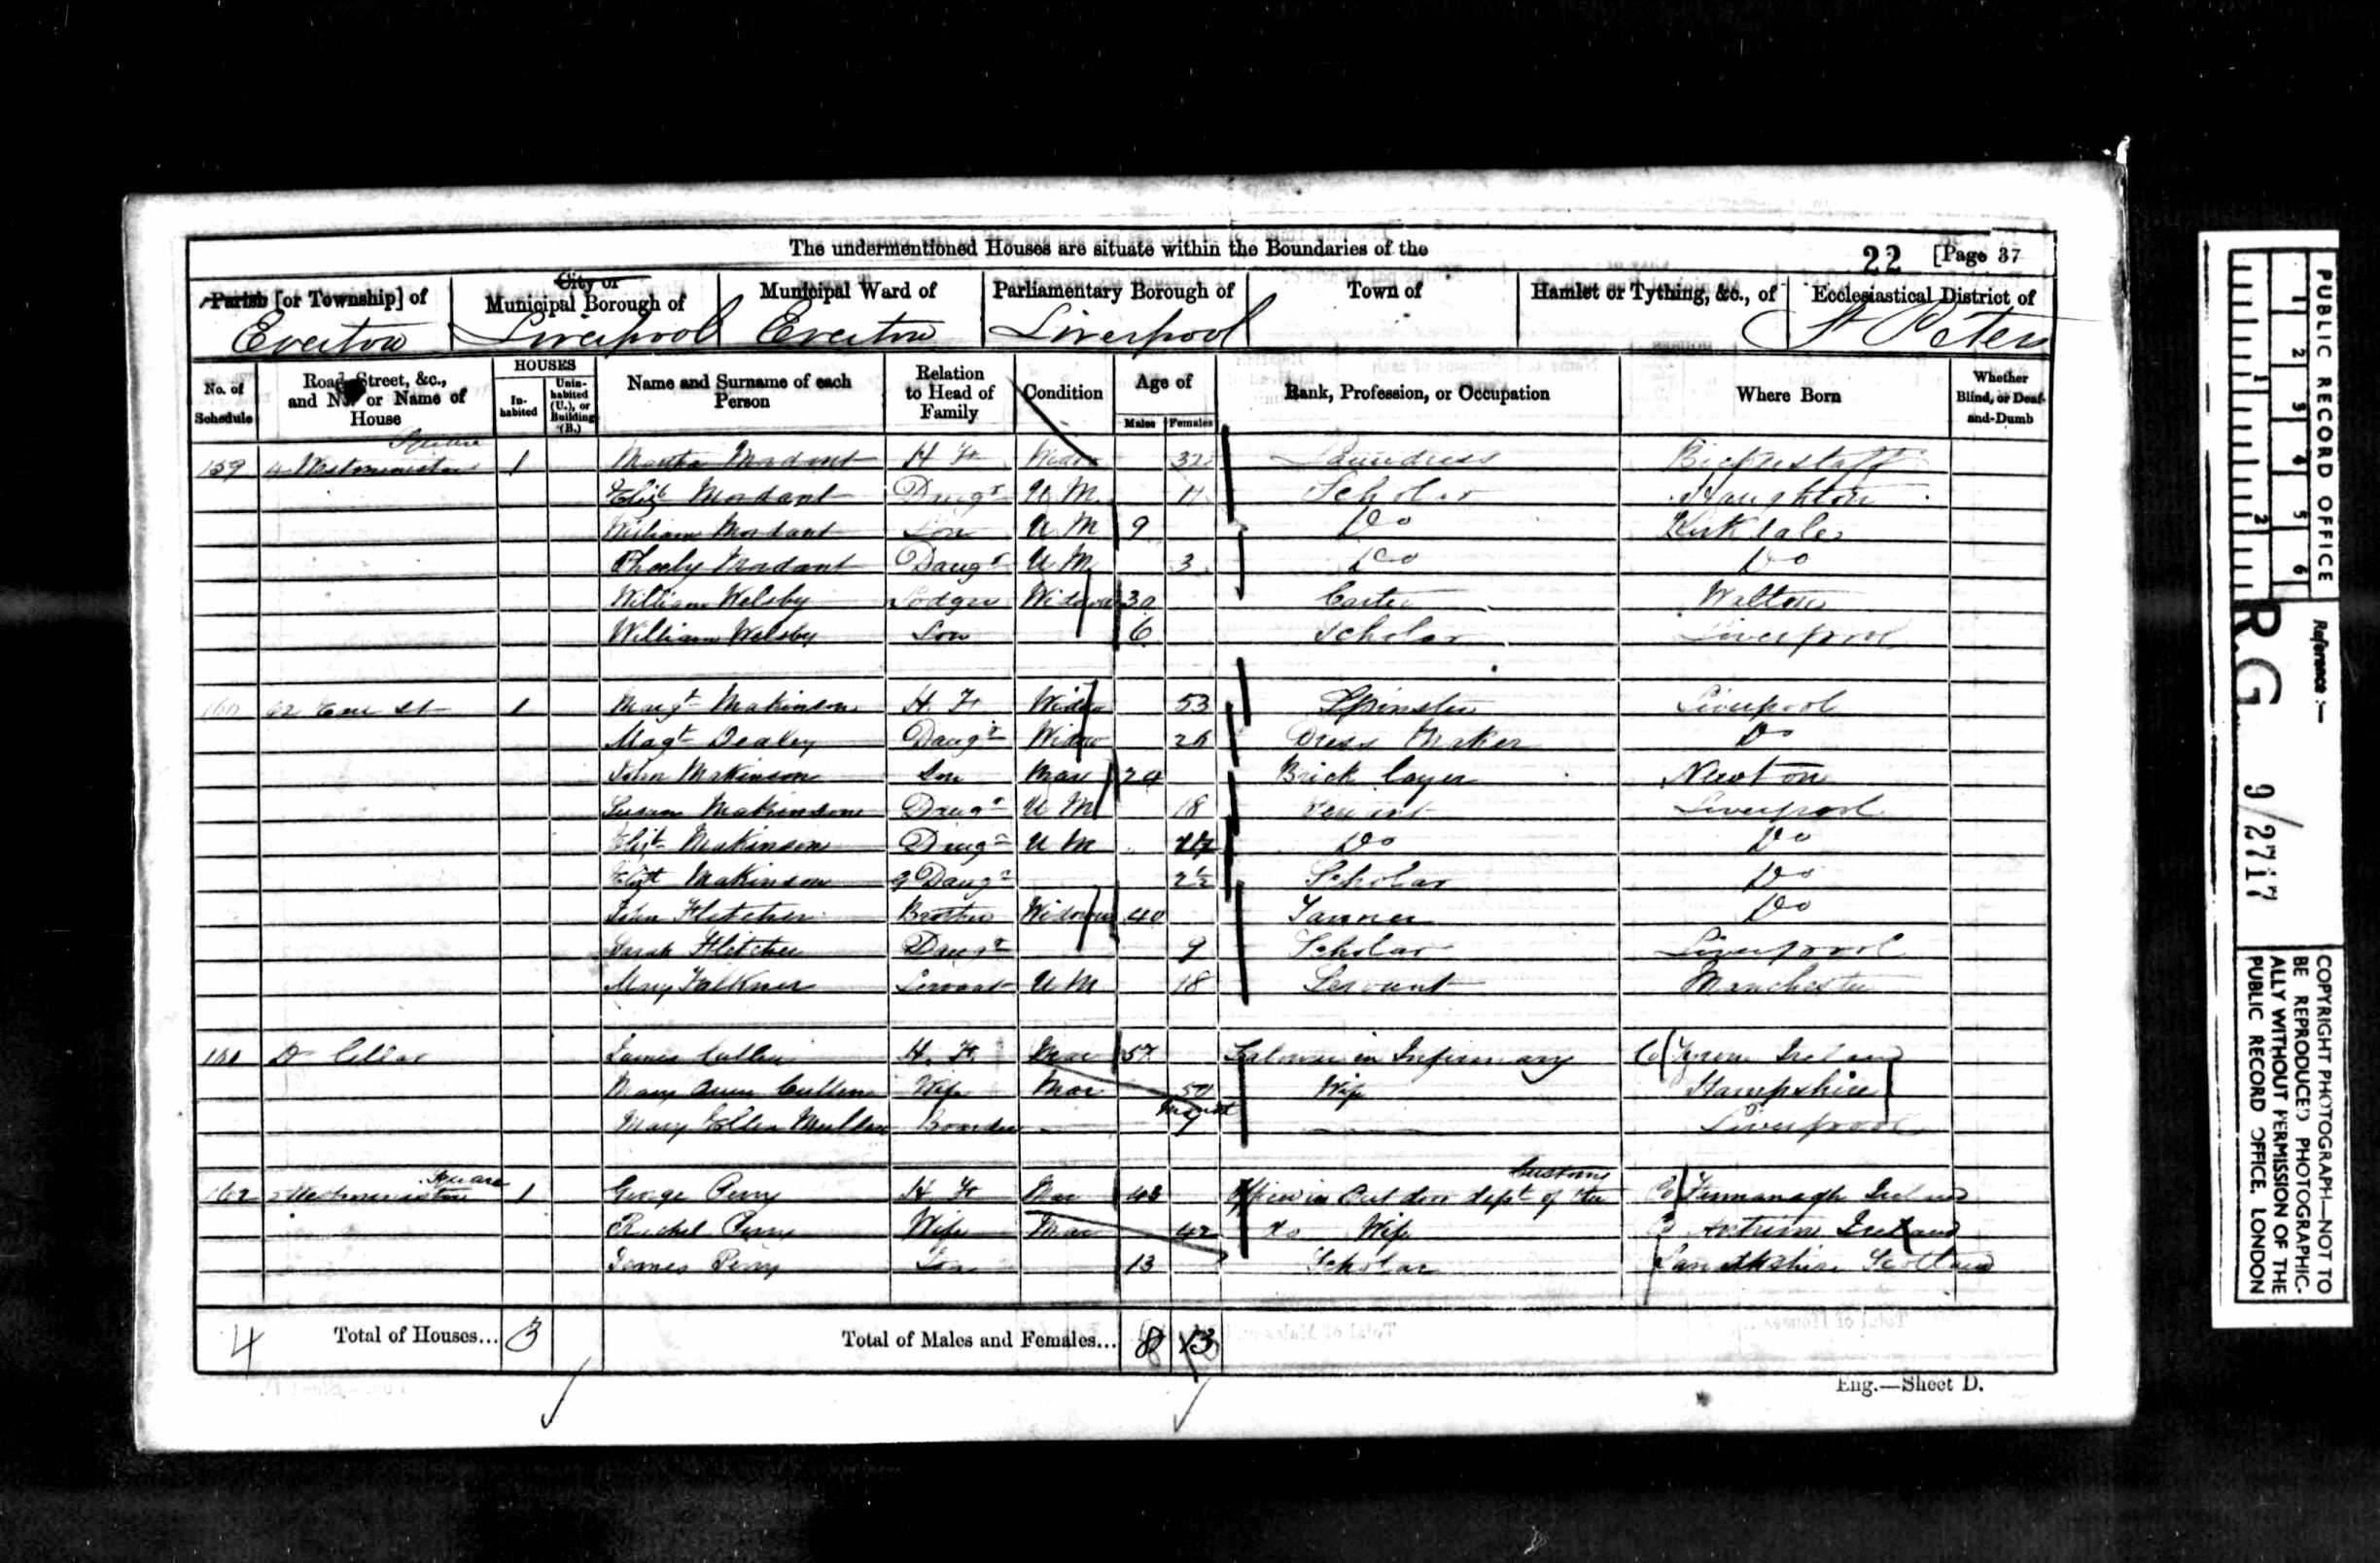 The undermentioned Houses are situate within the Boundaries of the
22 [Page 37
Parish [or Township] of
City or Municipal Borough of
Municipal Ward of
Parliamentary Borough of
Town of
Hamlet or Tything, &c., of
Ecclesiastical District of
Everton Liverpool Everton Liverpool St Peters
No. of Schedule
Road, Street, &c., and No. or Name of House
HOUSES
In-habited
Unin-habited (U.), or Building (B.)
Name and Surname of each Person
Relation to Head of Family
Condition
Age of
Males Females
Rank, Profession, or Occupation
Where Born
Whether Blind, or Deaf-and-Dumb
Square
159 4 Westminster 1 Martha Mordant H Fy Widow 32 Laundress Bickerstaff
Elizt Mordant Daugr U M 11 Scholar Haughton
William Mordant Son U M 9 Do Kirkdale
Pheeby Mordant Daugr U M 3 Do Do
William Welsby Lodger Widower 30 Carter Walton
William Welsby Son 6 Scholar Liverpool
160 St 1 Margt Makinson H Fy Widow 53 Spinster Liverpool
Magt Dealey Daugr Widow 26 Dress Maker Do
John Makinson Son Mar 24 Brick layer Newton
Susan Makinson Daugr U M 18 Servant Liverpool
Elizt Makinson Daugr U M Do Do
Elizt Makinson G Daugr 2½ Scholar Do
John Fletcher Brother Widower 40 Tanner Do
Sarah Fletcher Daugr 9 Scholar Liverpool
Mary Falkner Servant U M 18 Servant Manchester
161 Do Cellar James Cullen H. Fy Mar 57 Labourer in Infirmary Co Tyrone Ireland
Mary Ann Cullen Wife Mar 50 Wife Hampshire
Mary Ellen Mullen Boarder — 7 — Liverpool
Square Customs
162 5 Westminster 1 George Perry H Fy Mar 48 Officer in Out door dept of the Co Fermanagh Ireland
Rachel Perry Wife Mar 42 Do Wife Co Antrim Ireland
James Perry Son 13 Scholar Lanarkshire Scotland
4 Total of Houses... 3 Total of Males and Females... 8 13
Eng.—Sheet D.
PUBLIC RECORD OFFICE
1 2 3 4 5 6
1 2
Reference :—
R.G. 9/2717
COPYRIGHT PHOTOGRAPH—NOT TO
BE REPRODUCED PHOTOGRAPHIC-
ALLY WITHOUT PERMISSION OF THE
PUBLIC RECORD OFFICE, LONDON